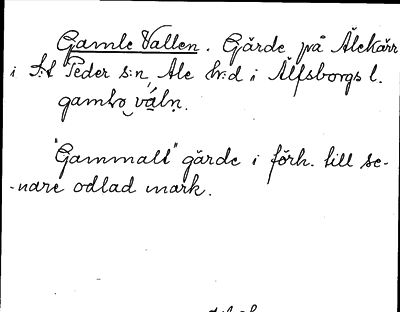 Gamle Vallen. Gärde på Älekärr
i S:t Peder s:n, Ale h:d i Älfsborgs l.
"Gammalt" gärde i förh. till se-
-nare odlad mark.